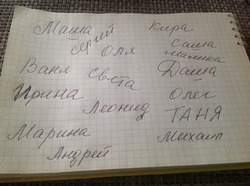 Маша Кира
Юрий
Оля Саша
Малинка
Ваня Света Даша
Ирина Олег
Леонид ТАНЯ
Марина Михаил
Андрей